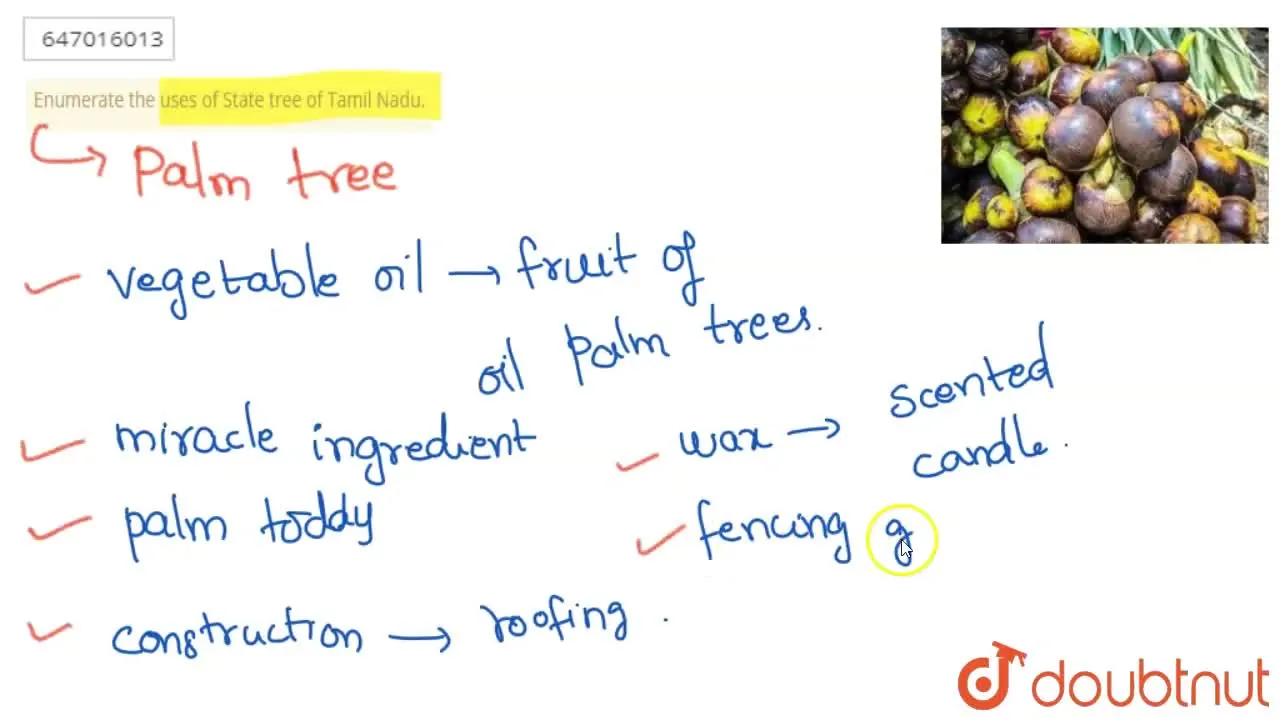 647016013
Enumerate the uses of State tree of Tamil Nadu.
Palm tree
vegetable oil → fruit of
oil Palm trees.
miracle ingredient
palm toddy
construction → roofing.
wax → scented
candle.
fencing g
doubtnut